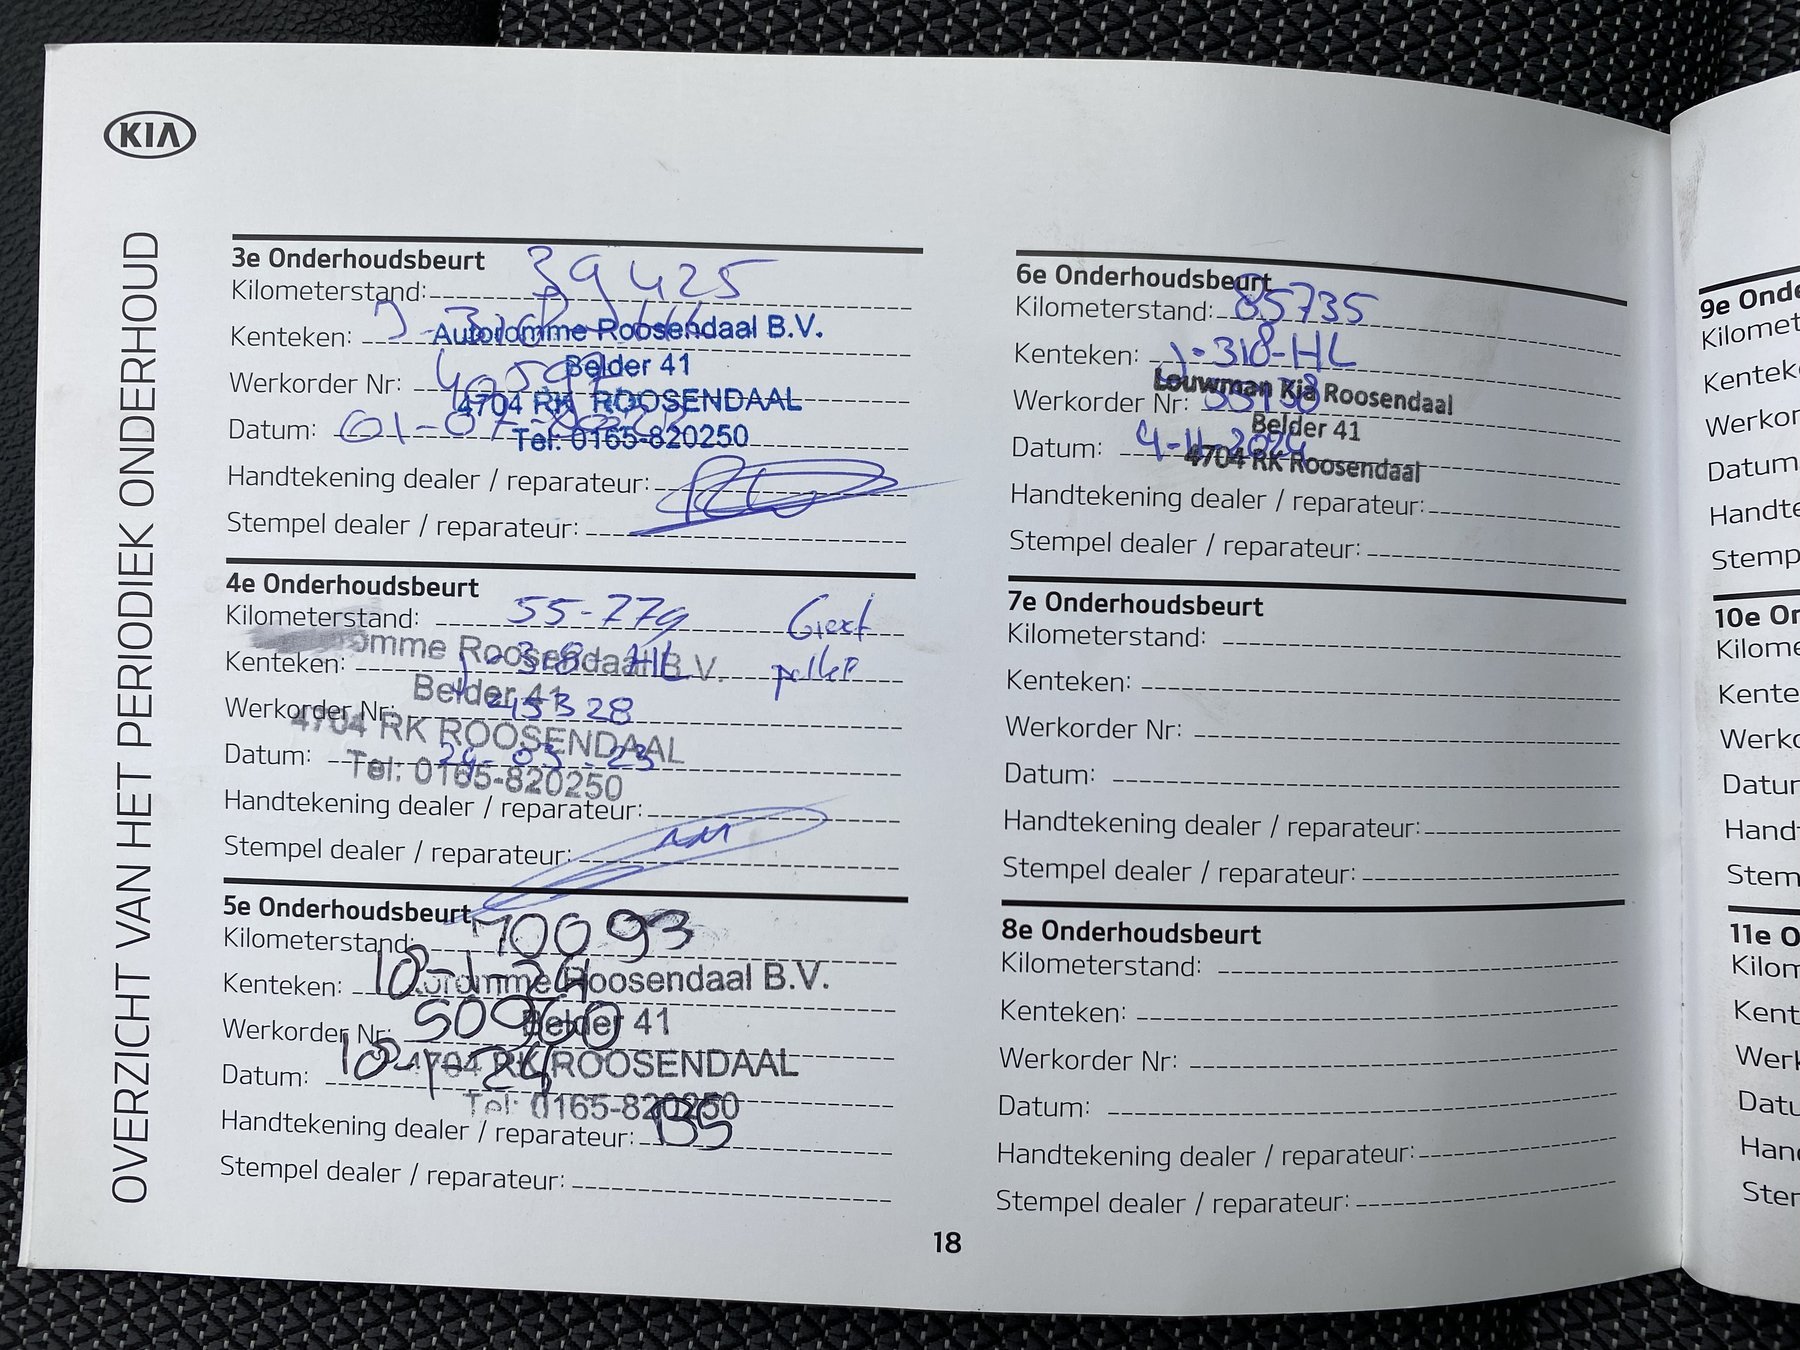 KIA
OVERZICHT VAN HET PERIODIEK ONDERHOUD
3e Onderhoudsbeurt
Kilometerstand: 39425
Kenteken:
Autoromme Roosendaal B.V.
Belder 41
Werkorder Nr:
4704 RK ROOSENDAAL
Datum: 01-07-
Tel: 0165-820250
Handtekening dealer / reparateur:
Stempel dealer / reparateur:
4e Onderhoudsbeurt
Kilometerstand: 55-779
omme Roosendaal B.V.
Kenteken: HL
Belder 41
Werkorder Nr: 45328
4704 RK ROOSENDAAL
Datum: 29-03-23
Tel: 0165-820250
Handtekening dealer / reparateur:
Stempel dealer / reparateur:
5e Onderhoudsbeurt
Kilometerstand: 70093
Kenteken: 18-1-24
Roosendaal B.V.
Werkorder Nr:
Belder 41
4704 RK ROOSENDAAL
Datum: 18-1-24
Tel: 0165-820250
Handtekening dealer / reparateur:
Stempel dealer / reparateur:
6e Onderhoudsbeurt
Kilometerstand: 85735
Kenteken: J-318-HL
Louwman Kia Roosendaal
Werkorder Nr:
Belder 41
Datum: 4-11-2024
4704 RK Roosendaal
Handtekening dealer / reparateur:
Stempel dealer / reparateur:
7e Onderhoudsbeurt
Kilometerstand:
Kenteken:
Werkorder Nr:
Datum:
Handtekening dealer / reparateur:
Stempel dealer / reparateur:
8e Onderhoudsbeurt
Kilometerstand:
Kenteken:
Werkorder Nr:
Datum:
Handtekening dealer / reparateur:
Stempel dealer / reparateur:
18
9e Onde
Kilomet
Kenteke
Werkor
Datum
Handte
Stemp
10e On
Kilome
Kente
Werko
Datur
Hand
Stem
11e O
Kilom
Kent
Werk
Datu
Hand
Ster